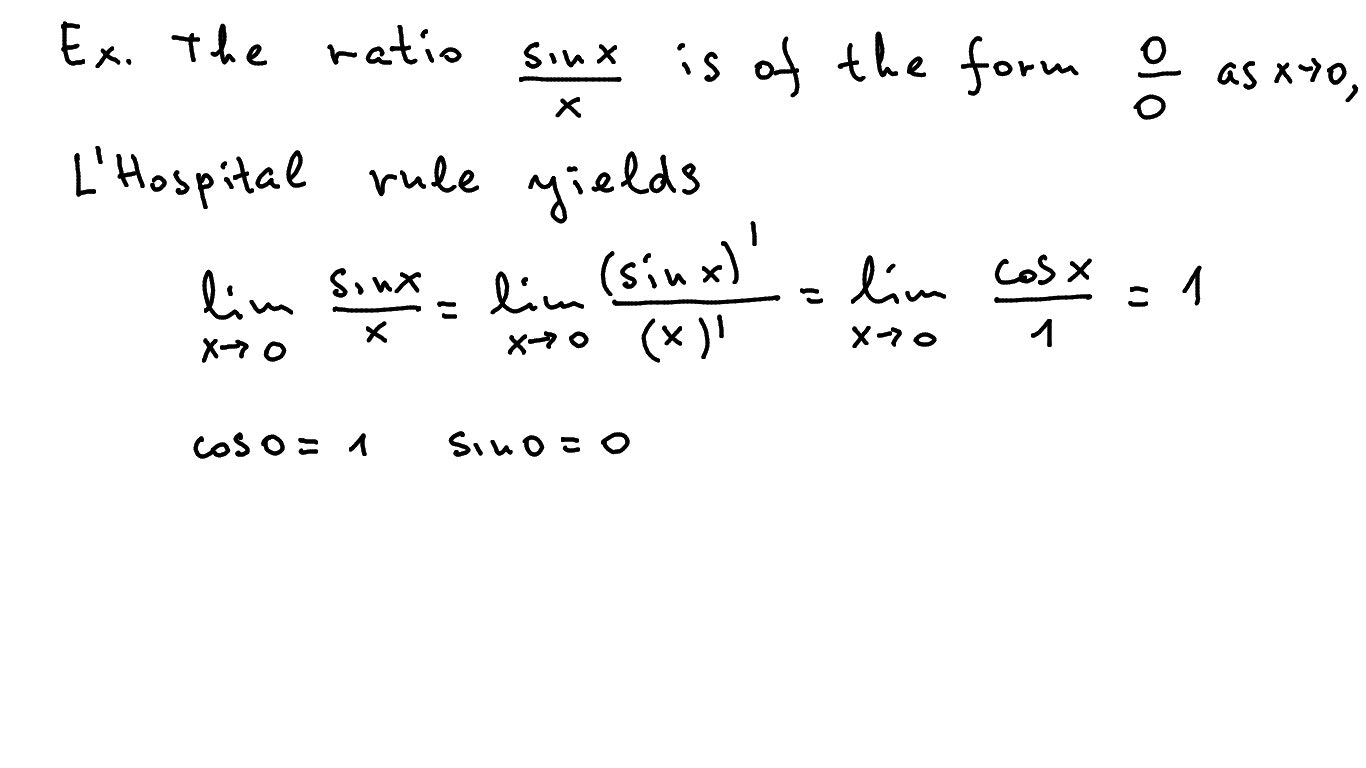 Ex. The ratio sin x / x is of the form 0/0 as x→0,
L'Hospital rule yields
lim x→0 sin x / x = lim x→0 (sin x)' / (x)' = lim x→0 cos x / 1 = 1
cos 0 = 1 sin 0 = 0